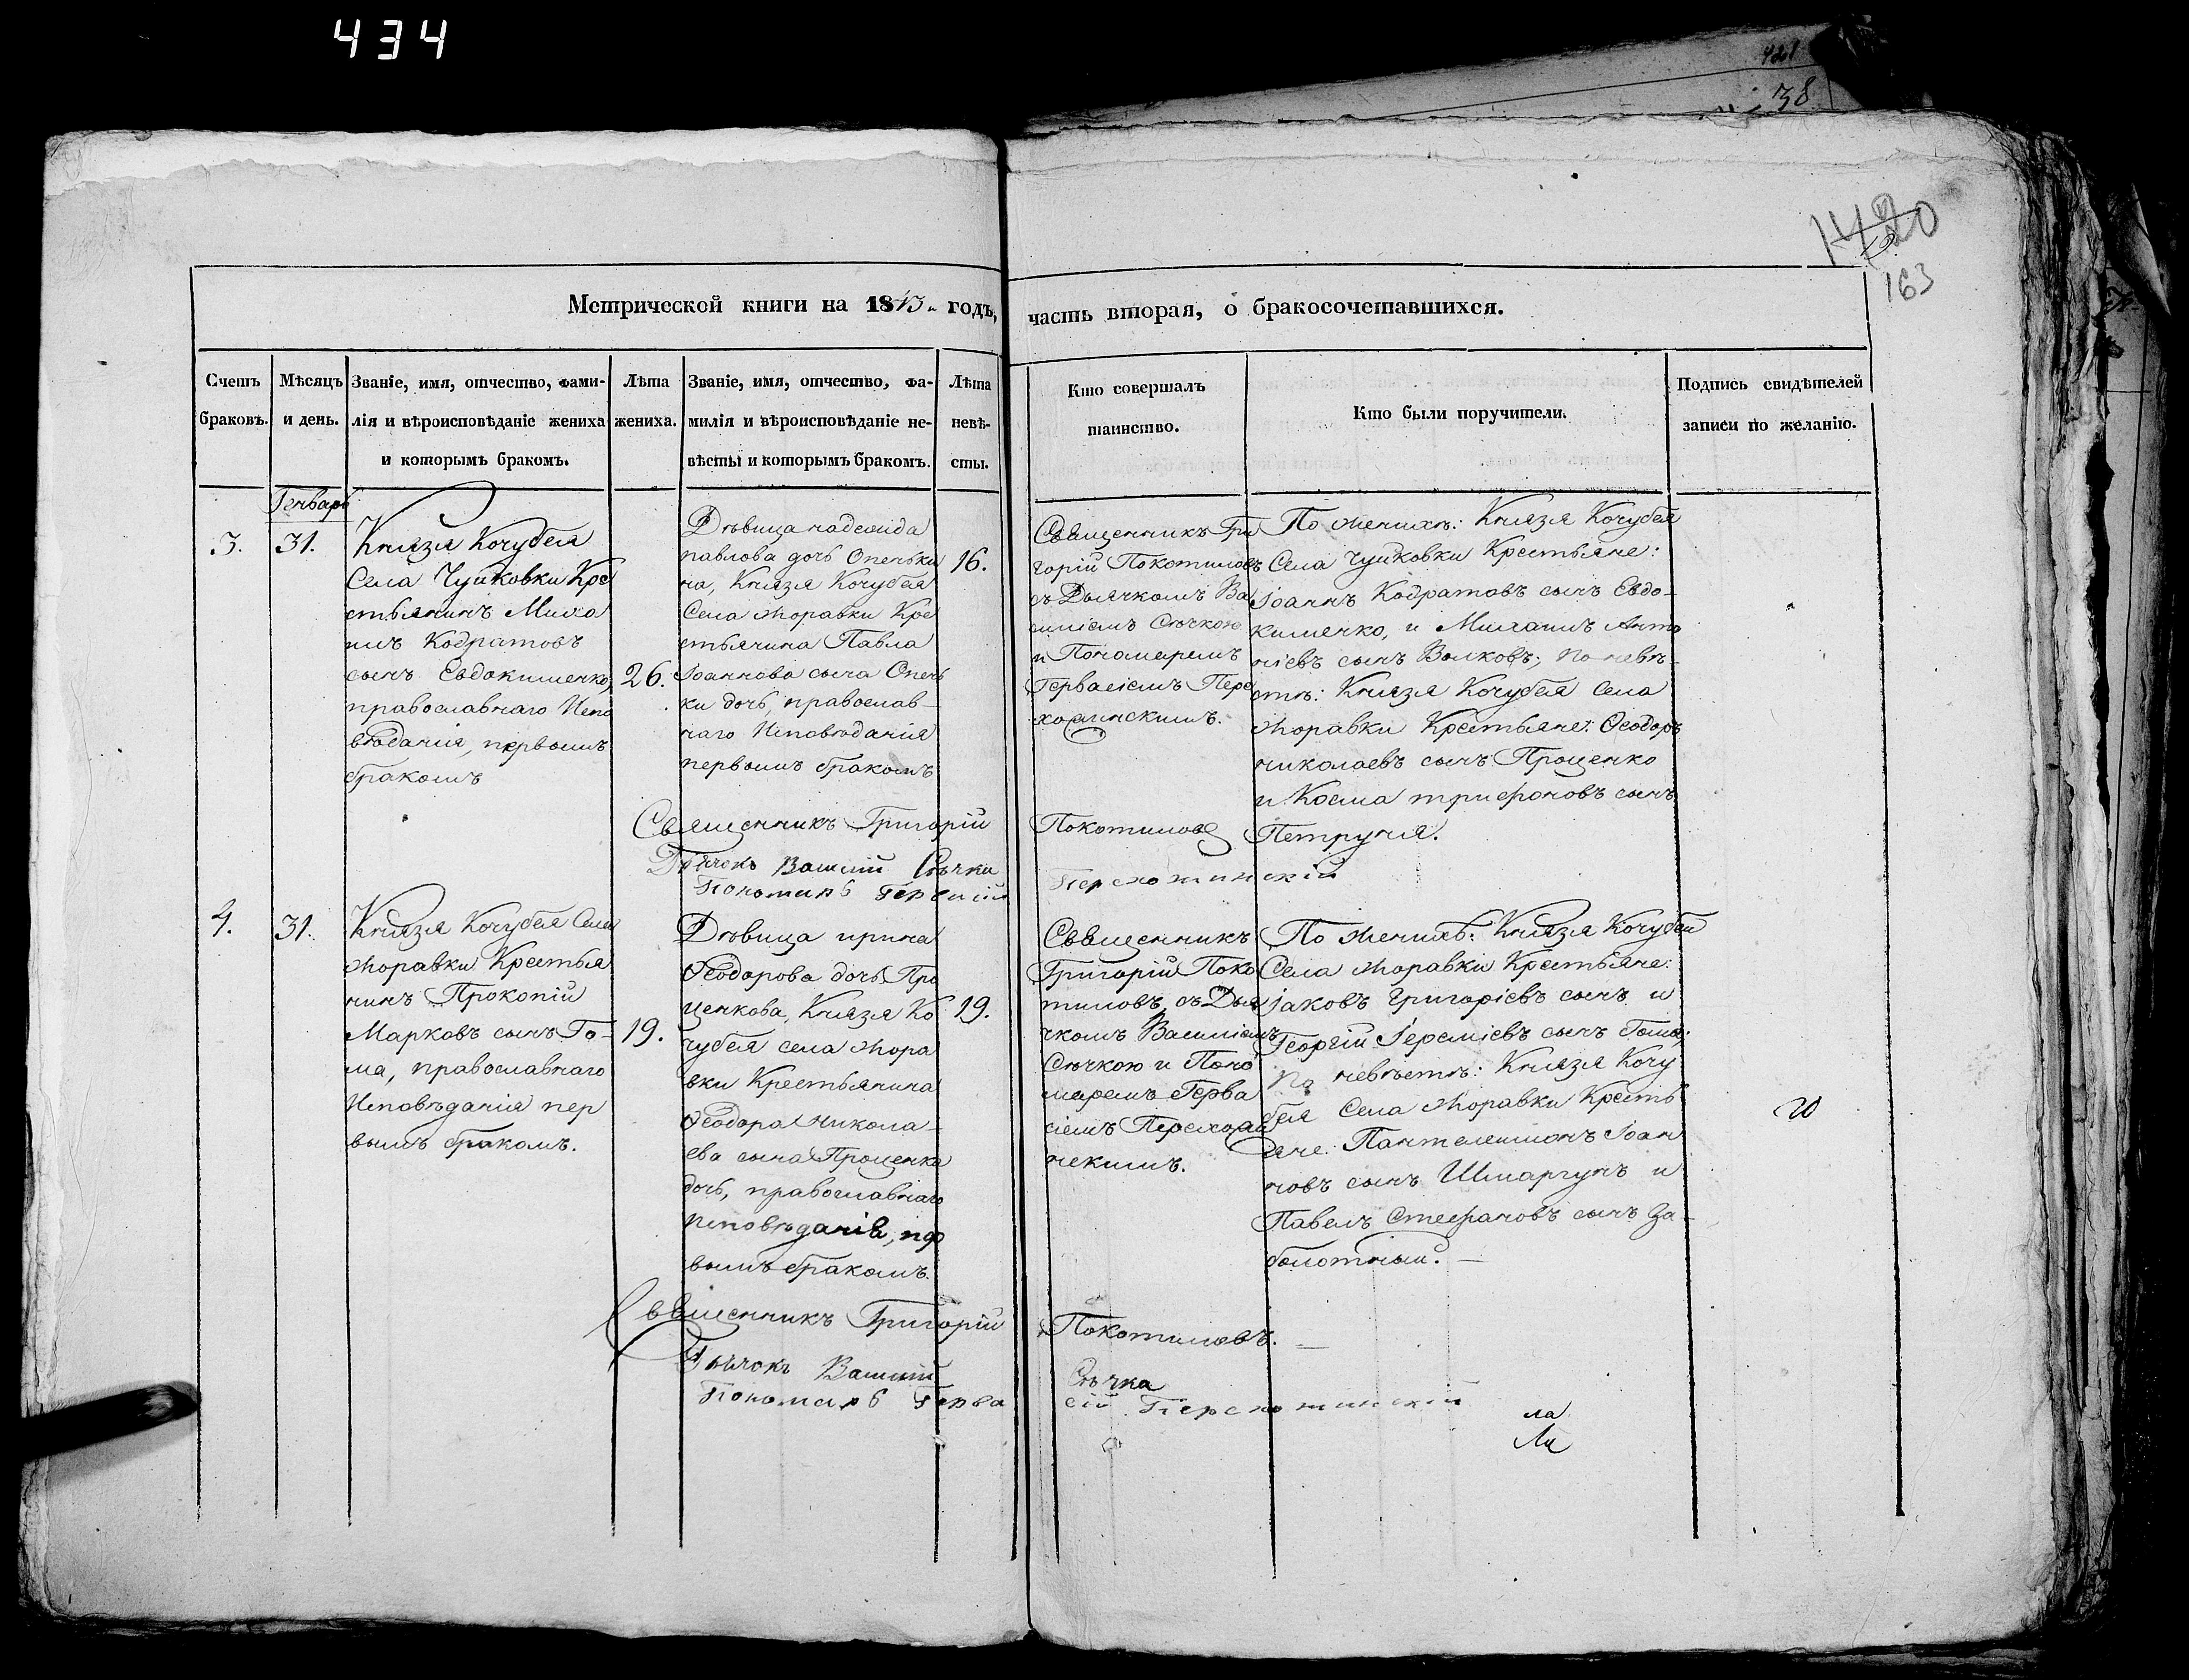 434
421
38
1420
163
Метрической книги на 1843. годъ, часть вторая, о бракосочетавшихся.
Счетъ
браковъ.
Мѣсяцъ
и день.
Званіе, имя, отчество, фами-
лія и вѣроисповѣданіе жениха
и которымъ бракомъ.
Лѣта
жениха.
Званіе, имя, отчество, фа-
милія и вѣроисповѣданіе не-
вѣсты и которымъ бракомъ.
Лѣта
невѣ-
сты.
Кто совершалъ
таинство.
Кто были поручители.
Подпись свидѣтелей
записи по желанію.
Генварь
3.
31.
Князя Кочубея
Села Чуйковки Кре
стьянинъ Миха
илъ Кодратовъ
сынъ Евдокименко,
православнаго Испо
вѣданія, первымъ
бракомъ
26.
Дѣвица надежда
павлова дочь Опеньки
на, Князя Кочубея
Села Жоравки Кре
стьянина Павла
Іоаннова сына Опень
ки дочь, православ-
наго Исповѣданія
первымъ бракомъ
16.
Священникъ Гри
горій Покотиловъ
съ Дьячкомъ Ва
силіемъ Сѣчкою
и Пономаремъ
Гервасіемъ Пере
хожинскимъ.
По женихѣ: Князя Кочубея
Села Чуйковки Крестьяне:
Іоаннъ Кодратовъ сынъ Евдо-
кименко, и Михаилъ Анто
ніевъ сынъ Волковъ; по невѣ-
стѣ: Князя Кочубея Села
Жоравки Крестьяне: Ѳеодоръ
николаевъ сынъ Проценко
и Косма трифоновъ сынъ
Петруня.
Священникъ Григорій Покотиловъ
Дьячокъ Василій Сѣчка
Пономарь Гервасій Перехожинскій
4.
31.
Князя Кочубея Села
Жоравки Крестья
нинъ Прокопій
Марковъ сынъ Го-
ма, православнаго
Исповѣданія пер
вымъ бракомъ.
19.
Дѣвица ирина
Ѳеодорова дочь Про
ценкова, Князя Ко
чубея села Жора
вки Крестьянина
Ѳеодора Никола-
ева сына Проценка
дочь, православнаго
Исповѣданія, пер
вымъ бракомъ.
19.
Священникъ
Григорій Поко
тиловъ съ Дья
чкомъ Василіемъ
Сѣчкою и Поно
маремъ Герва
сіемъ Перехожи
нскимъ.
По женихѣ: Князя Кочубея
Села Жоравки Крестьяне:
Іаковъ Григоріевъ сынъ и
Георгій Іереміевъ сынъ Гома;
По невѣстѣ: Князя Кочу
бея Села Жоравки Кресть
яне: Пантелеимонъ Іоан
новъ сынъ Шмаргунъ и
Павелъ Стефановъ сынъ За-
болотный.
Священникъ Григорій Покотиловъ.
Дьячокъ Василій Сѣчка
Пономарь Герва
сій Перехожинскій